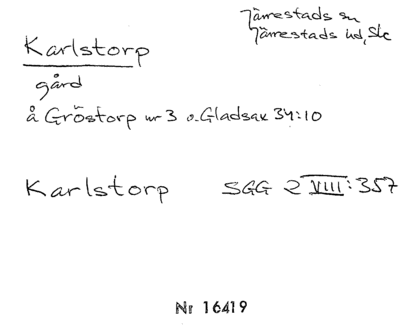 Järrestads sn
Järrestads hd, Skc
Karlstorp
gård
å Gröstorp nr 3 o. Gladsax 34:10
Karlstorp SGG 2 VIII: 357
Nr 16419